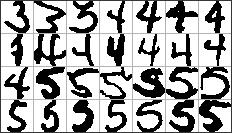 3 3 3 4 4 4 4
1 4 4 4 4 4 4
4 5 5 5 5 5 5
5 5 5 5 5 5 5